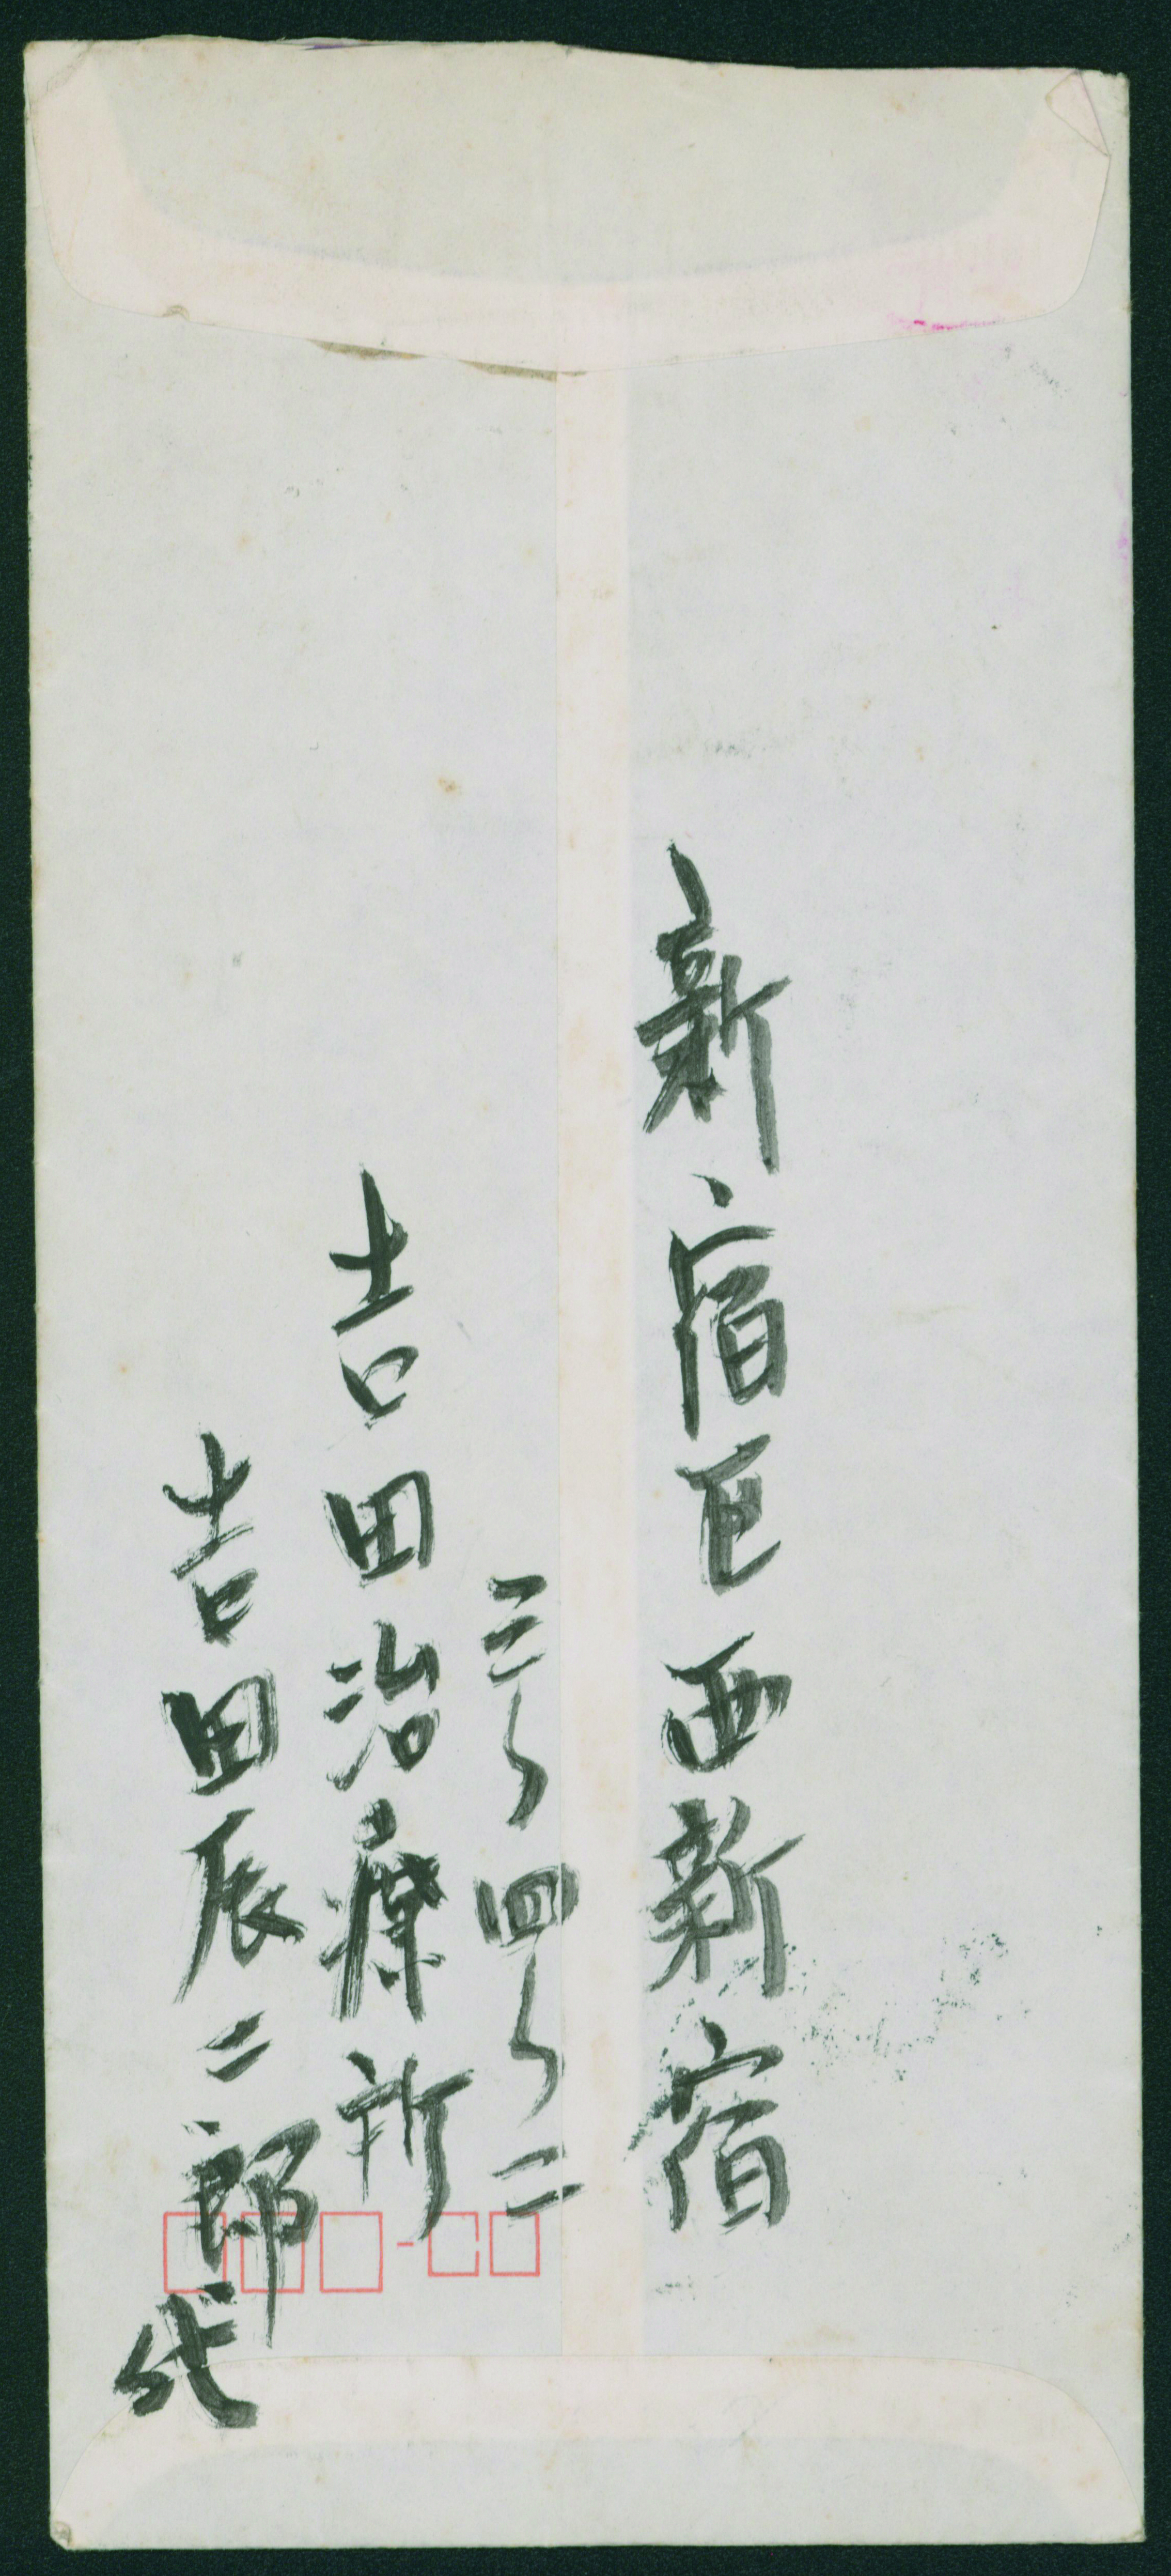 新宿区西新宿
三ノ四ノ二
吉田治療所
吉田辰二郎
代